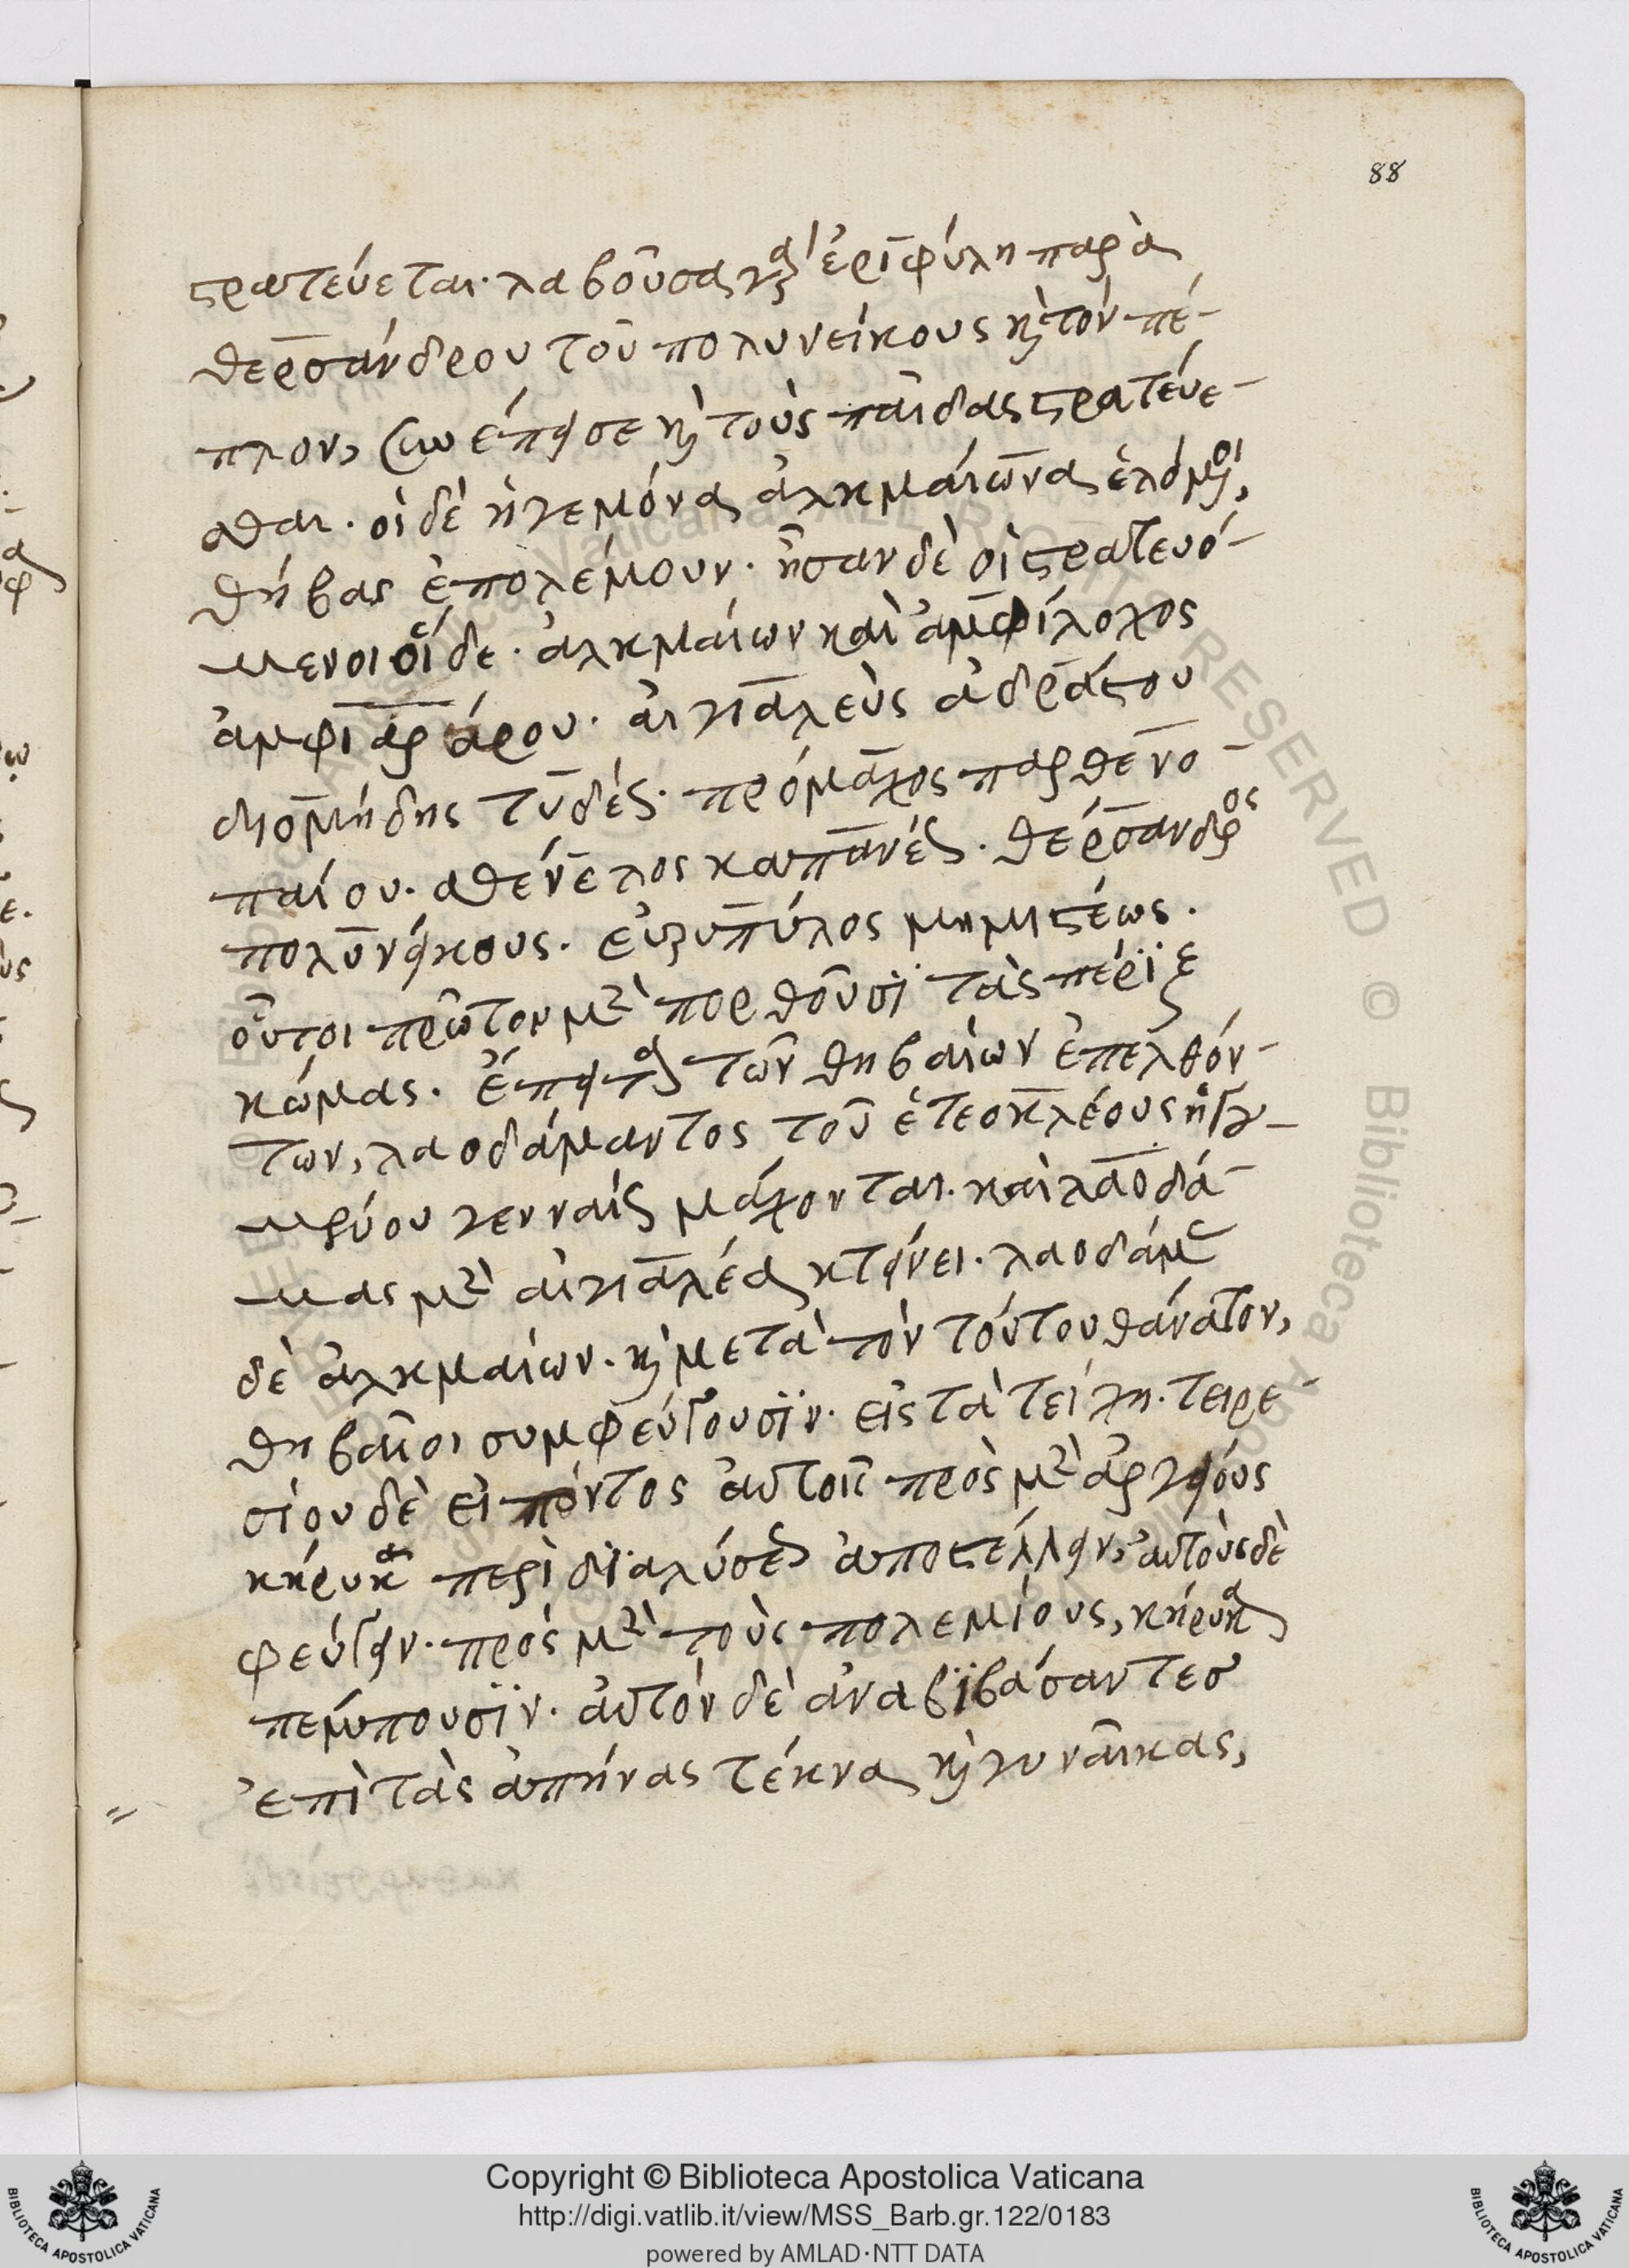 88
στρατεύεται. λαβοῦσα γὰρ ἐριφύλη παρὰ
θερσάνδρου τοῦ πολυνείκους καὶ τὸν πέ-
πλον, συνέπεισε καὶ τοὺς παῖδας στρατεύε-
σθαι. οἱ δὲ ἡγεμόνα ἀλκμαίωνα ἑλόμενοι,
θήβας ἐπολέμουν. ἦσαν δὲ οἱ στρατευό-
μενοι οἵδε. ἀλκμαίων καὶ ἀμφίλοχος
ἀμφιαράου. αἰγιαλεὺς ἀδράστου
διομήδης τυδέως. πρόμαχος παρθενο-
παίου. σθένελος καπανέως. θέρσανδρος
πολυνείκους. εὐρύπυλος μηκιστέως.
οὗτοι πρῶτον μὲν πορθοῦσι τὰς πέριξ
κώμας. ἔπειτα τῶν θηβαίων ἐπελθόν-
των, λαοδάμαντος τοῦ ἐτεοκλέους ἡγου-
μένου γενναίως μάχονται. καὶ λαοδά-
μας μὲν αἰγιαλέα κτείνει. λαοδάμαντα
δὲ ἀλκμαίων. καὶ μετὰ τὸν τούτου θάνατον,
θηβαῖοι συμφεύγουσιν εἰς τὰ τείχη. τειρε-
σίου δὲ εἰπόντος αὐτοῖς πρὸς μὲν ἀργείους
κήρυκα περὶ διαλύσεως ἀποστέλλειν, αὐτοὺς δὲ
φεύγειν. πρὸς μὲν τοὺς πολεμίους, κήρυκα
πέμπουσιν. αὐτὸν δὲ ἀναβιβάσαντες
ἐπὶ τὰς ἀπήνας τέκνα καὶ γυναῖκας,
Copyright © Biblioteca Apostolica Vaticana
http://digi.vatlib.it/view/MSS_Barb.gr.122/0183
powered by AMLAD·NTT DATA
BIBLIOTECA APOSTOLICA VATICANA
BIBLIOTECA APOSTOLICA VATICANA